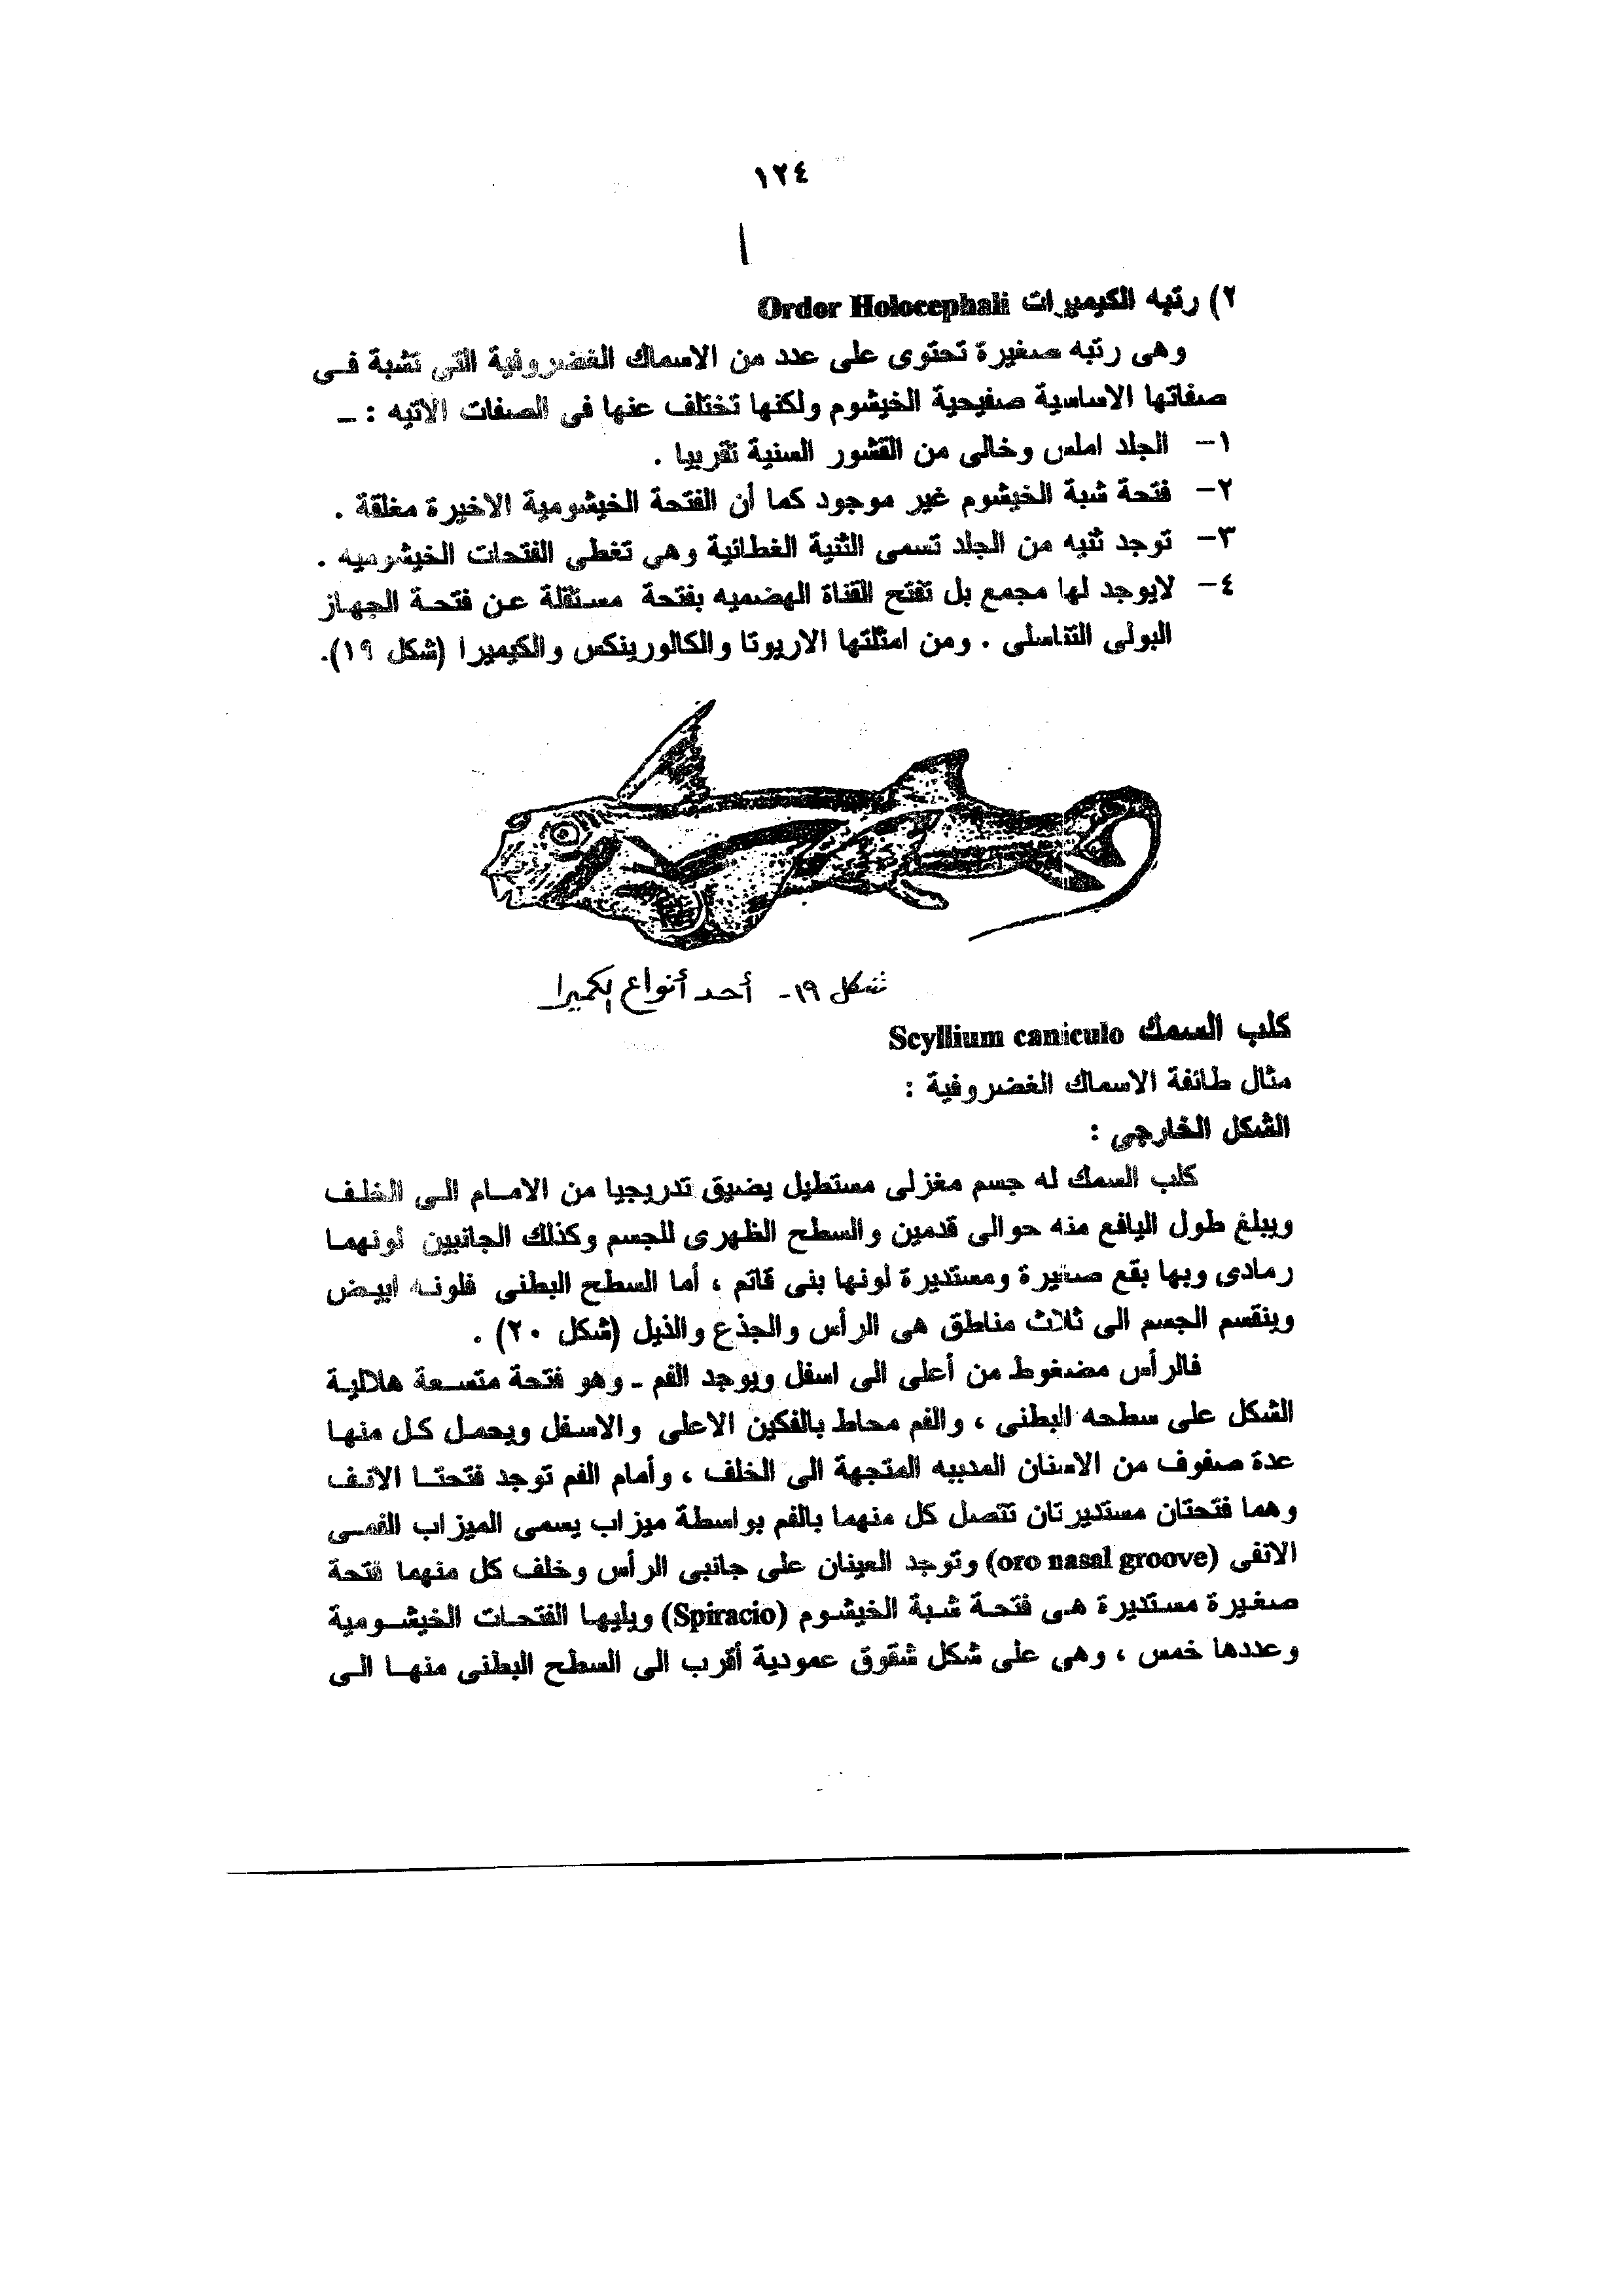 ١٢٤
٢) رتبه الكيميرات Ordor Holocephali
وهى رتبه صغيرة تحتوى على عدد من الاسماك الغضروفية التى تشبة فى
صفاتها الاساسية صفيحية الخيشوم ولكنها تختلف عنها فى الصفات الاتيه : –
١– الجلد املس وخالى من القشور السنية تقريبا .
٢– فتحة شبة الخيشوم غير موجود كما أن الفتحة الخيشومية الاخيرة مغلقة .
٣– توجد ثنيه من الجلد تسمى الثنية الغطائية وهى تغطى الفتحات الخيشوميه .
٤– لايوجد لها مجمع بل تفتح القناة الهضميه بفتحة مستقلة عن فتحة الجهاز
البولى التناسلى . ومن امثلتها الاريوتا والكالورينكس والكيميرا (شكل ١٩).
شكل ١٩- أحد أنواع الكميرا
كلب السمك Scyllium caniculo
مثال طائفة الاسماك الغضروفية :
الشكل الخارجى :
كلب السمك له جسم مغزلى مستطيل يضيق تدريجيا من الامام الى الخلف
ويبلغ طول اليافع منه حوالى قدمين والسطح الظهرى للجسم وكذلك الجانبين لونهما
رمادى وبها بقع صغيرة ومستديرة لونها بنى قاتم ، أما السطح البطنى فلونه ابيض
وينقسم الجسم الى ثلاث مناطق هى الرأس والجذع والذيل (شكل ٢٠) .
فالرأس مضغوط من أعلى الى اسفل ويوجد الفم ـ وهو فتحة متسعة هلالية
الشكل على سطحه البطنى ، والفم محاط بالفكين الاعلى والاسفل ويحمل كل منها
عدة صفوف من الاسنان المدببه المتجهة الى الخلف ، وأمام الفم توجد فتحتا الانف
وهما فتحتان مستديرتان تتصل كل منهما بالفم بواسطة ميزاب يسمى الميزاب الفمى
الانفى (oro nasal groove) وتوجد العينان على جانبى الرأس وخلف كل منهما فتحة
صغيرة مستديرة هى فتحة شبة الخيشوم (Spiracio) ويليها الفتحات الخيشومية
وعددها خمس ، وهى على شكل شقوق عمودية أقرب الى السطح البطنى منها الى